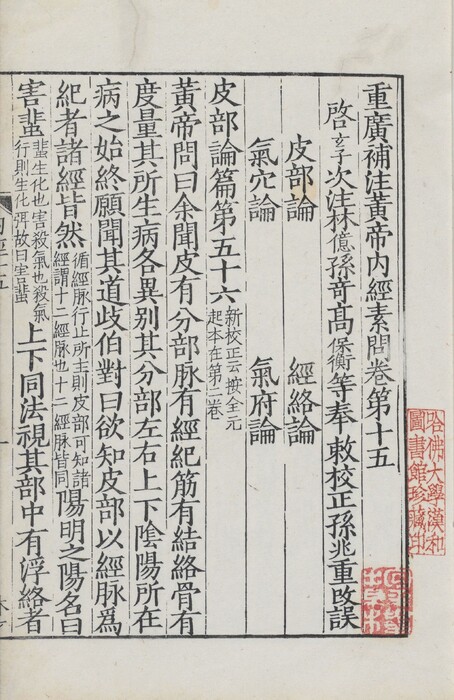 重廣補注黃帝內經素問卷第十五
啓玄子次注林億孫竒高保衡等奉敕校正孫兆重攺誤
皮部論 經絡論
氣穴論 氣府論
皮部論篇第五十六新校正云按全元起本在第二卷
黃帝問曰余聞皮有分部脉有經紀筋有結絡骨有
度量其所生病各異别其分部左右上下陰陽所在
病之始終願聞其道歧伯對曰欲知皮部以經脉爲
紀者諸經皆然循經脉行止所主則皮部可知諸經謂十二經脉也十二經脉皆同陽明之陽名曰
害蜚蜚生化也害殺氣也殺氣行則生化弭故曰害蜚上下同法視其部中有浮絡者
哈佛大學漢和
圖書館珍藏印